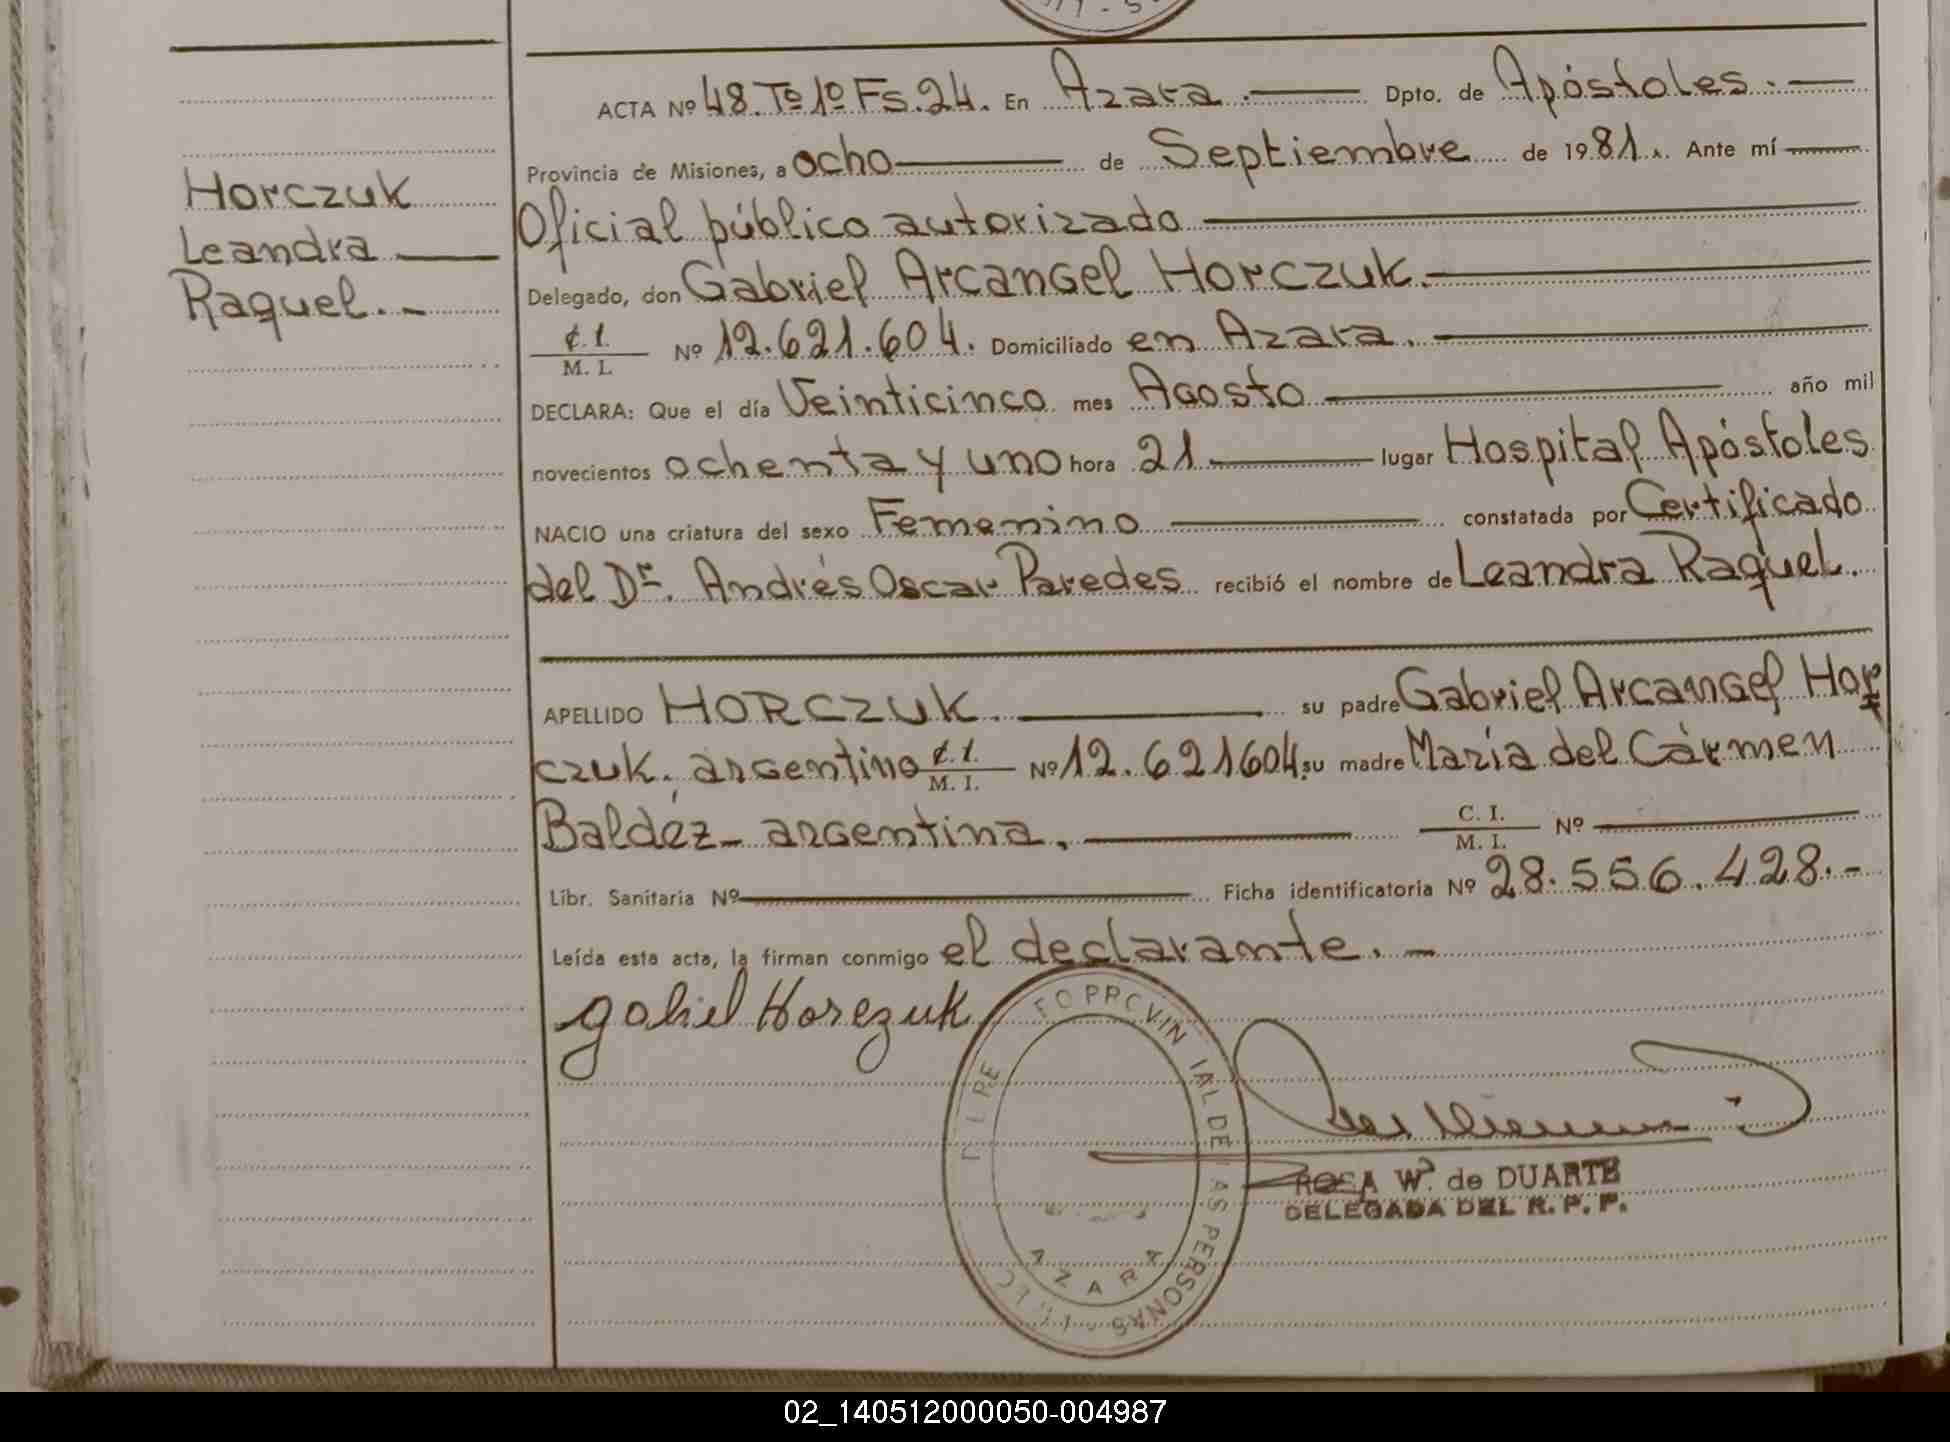 Horczuk
Leandra
Raquel. -
ACTA Nº 48. Tº 1º Fs. 24. En Azara. Dpto. de Apóstoles. -
Provincia de Misiones, a ocho de Septiembre de 1981. Ante mí
Oficial público autorizado
Delegado, don Gabriel Arcangel Horczuk.
C. I. / M. I. Nº 12.621.604. Domiciliado en Azara.
DECLARA: Que el día Veinticinco mes Agosto año mil
novecientos ochenta y uno hora 21 lugar Hospital Apóstoles
NACIO una criatura del sexo Femenino constatada por Certificado
del Dr. Andrés Oscar Paredes recibió el nombre de Leandra Raquel.
APELLIDO HORCZUK. su padre Gabriel Arcangel Hor
czuk, argentino C. I. / M. I. Nº 12.621604. su madre María del Cármen
Baldéz - argentina. C. I. / M. I. Nº
Libr. Sanitaria Nº Ficha identificatoria Nº 28.556.428. -
Leída esta acta, la firman conmigo el declarante. -
gabiel Horczuk
PROVIN IAL DE AS PERSONAS
AZARA
ROSA W. de DUARTE
DELEGADA DEL R. P. P.
02_140512000050-004987